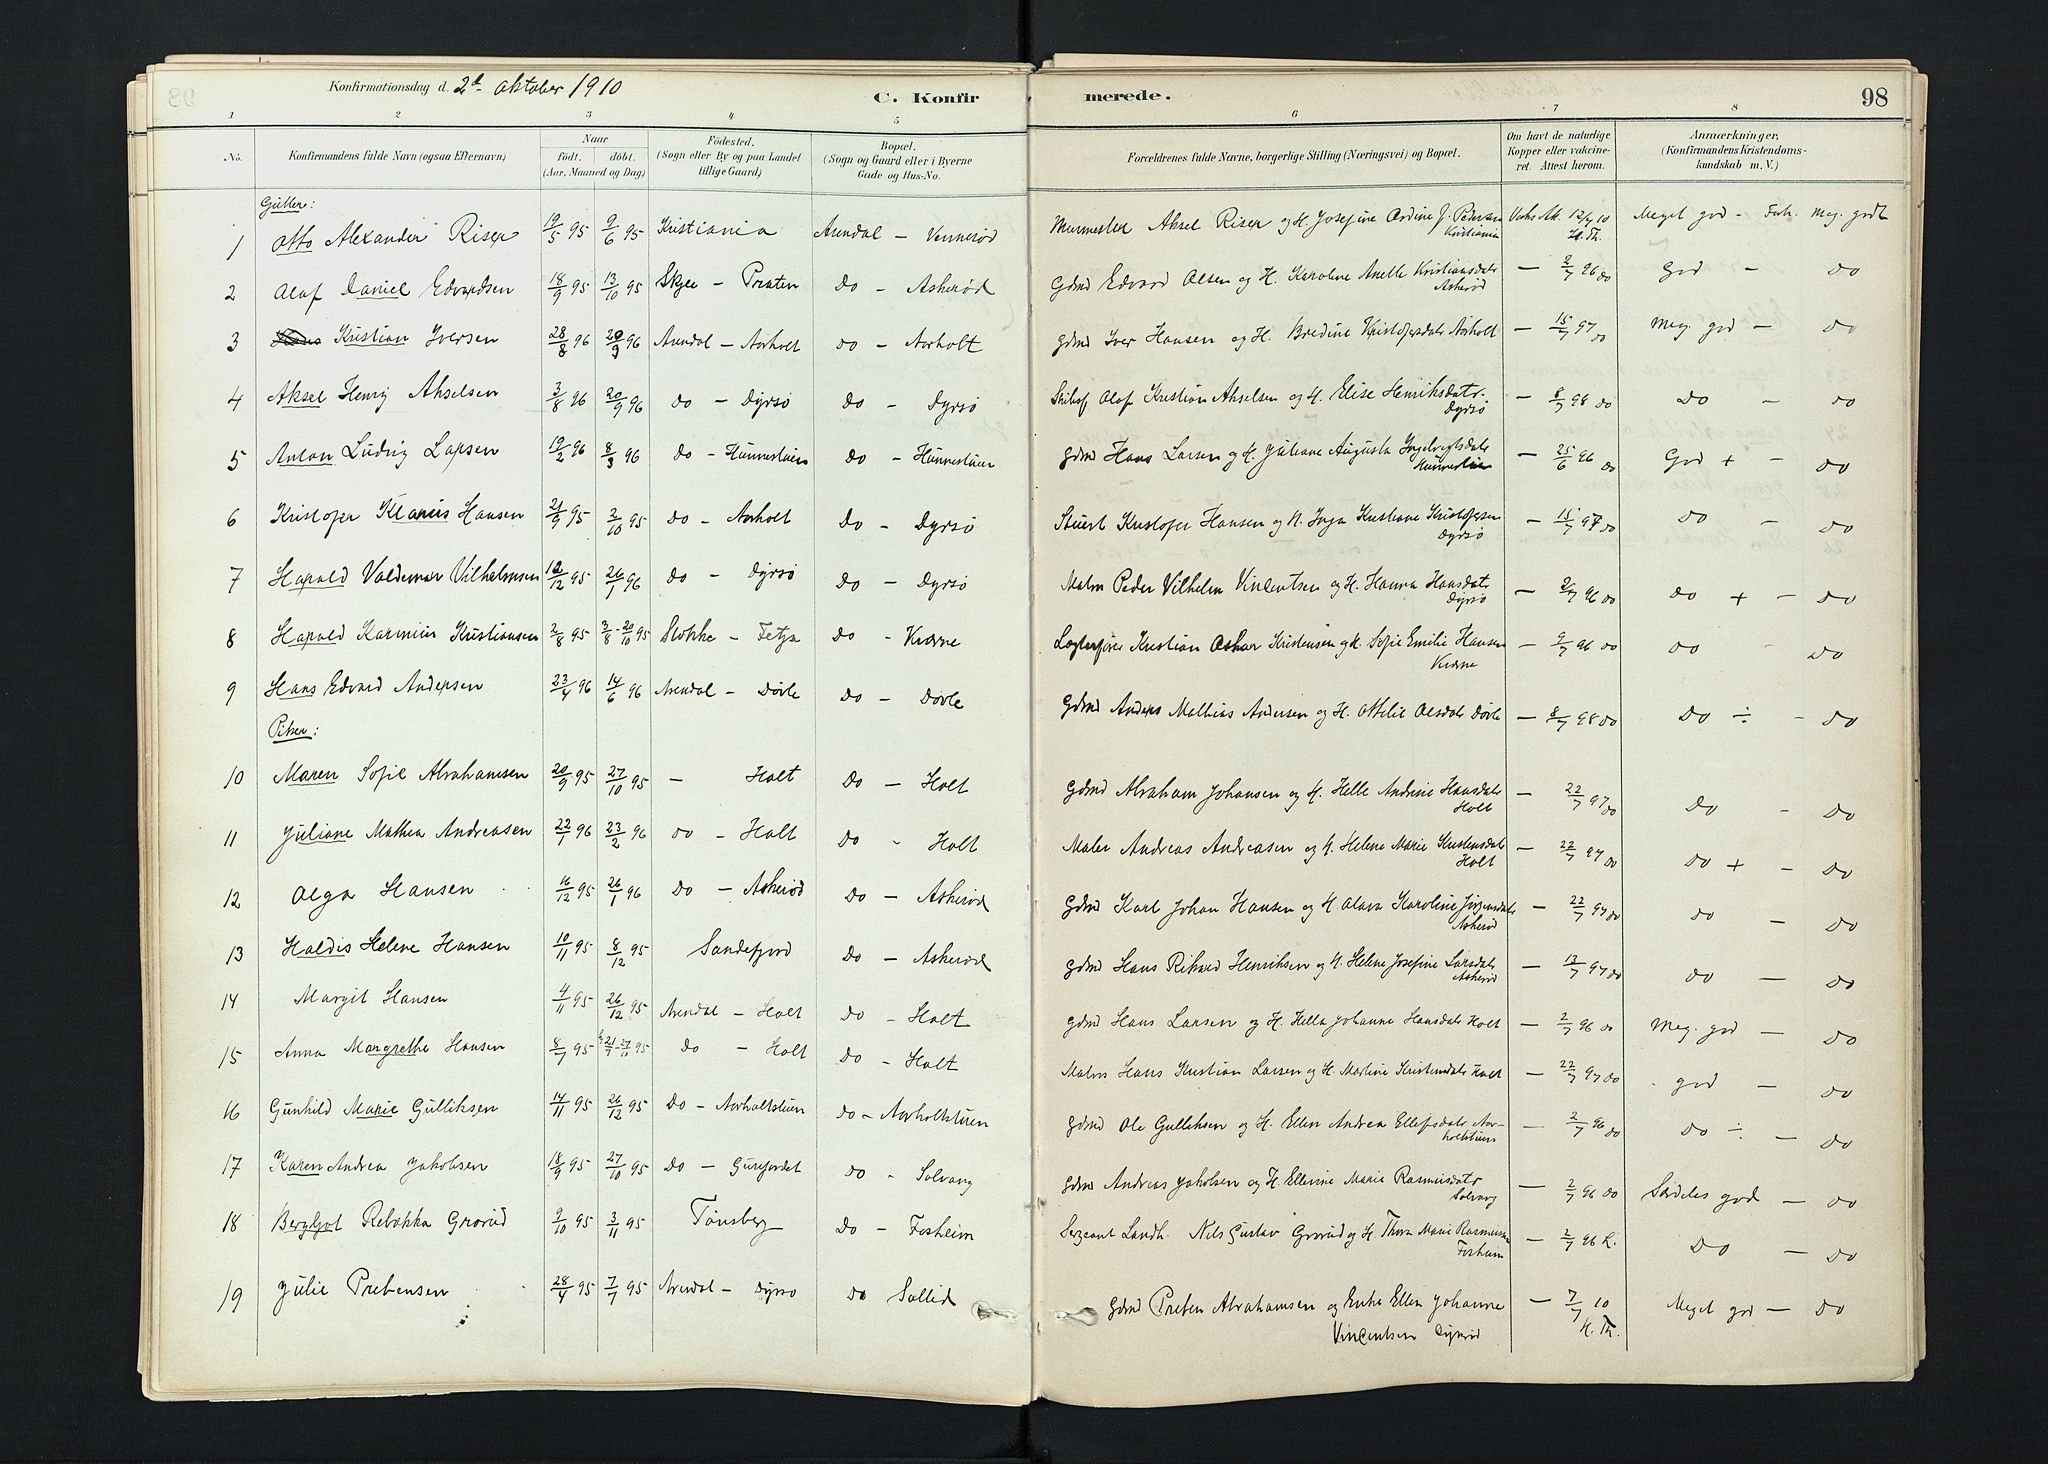 Konfirmationsdag d. 2d oktober 1910
C. Konfirmerede.
98
1 2 3 4 5 6 7 8
No. Konfirmandens fulde Navn (ogsaa Efternavn) Naar født. døbt. (Aar, Maaned og Dag) Fødested. (Sogn eller By og paa Landet tillige Gaard) Bopæl. (Sogn og Gaard eller i Byerne Gade og Hus-No. Forældrenes fulde Navne, borgerlige Stilling (Næringsvei) og Bopæl. Om havt de naturlige Kopper eller vakcineret. Attest herom. Anmærkninger, (Konfirmandens Kristendomskundskab m. V.)
Gutter:
1 Otto Alexander Riser 19/5 95 9/6 95 Kristiania Arendal - Vennerød Murmester Aksel Riser og H. Josefine Ordine J. Pedersen Kristiania 12/7 10 H. Th. Meget god - Forh. Meg. godt
2 Olaf Daniel Edvardsen 18/9 95 13/10 95 Skjee - Præsten Do - Askerød Gdmd Edvard Olsen og H. Karoline Anette Kristiansdatr Askerød - 2/7 96 do God - Do
3 Hans Kristian Iversen 28/8 96 20/9 96 Arendal - Aorholt Do - Aorholt Gdmd Iver Hansen og H. Bredine Kristofersdatr Aorholt - 15/7 97 do Meg. god - Do
4 Aksel Henrij Akselsen 3/8 96 20/9 96 Do - Dyrsø Do - Dyrsø Olaf Kristian Akselsen og H. Elise Henriksdatr Dyrsø - 8/7 98 do Do - Do
5 Anton Ludvig Larsen 19/2 96 8/3 96 Do - Hunnestuen Do - Hunnestuen Gdmd Hans Larsen og H. Juliane Augusta Ingebregtsdatr Hunnestuen - 25/6 96 do God + - Do
6 Kristofer Klarius Hansen 21/9 95 2/10 95 Do - Aorholt Do - Dyrsø Stuert Kristofer Hansen og H. Inga Kristiane Kristofersen Dyrsø - 15/7 97 do Do - Do
7 Harald Valdemar Vilhelmsen 12/12 95 26/1 96 Do - Dyrsø Do - Dyrsø Matros Peder Vilhelm Vincentsen og H. Hanna Hansdatr Dyrsø - 2/7 96 do Do + - Do
8 Harald Karinius Kristiansen 2/8 95 3/8 - 20/10 95 Stokke - Fetja Do - Kværne Lægterfører Kristian Oskar Kristensen og H. Sofie Emilie Hansen Kværne - 9/7 96 do Do - Do
9 Hans Edvard Andersen 23/4 96 14/6 96 Arendal - Døvle Do - Døvle Gdmd Anders Mathias Andersen og H. Ottelie Olsdatr Døvle - 8/7 98 do Do ÷ - Do
Piker:
10 Maren Sofie Abrahamsen 20/9 95 27/10 95 - Holt Do - Holt Gdmd Abraham Johansen og H. Helle Andrine Hansdatr Holt - 22/7 97 do Do - Do
11 Juliane Mathea Andreasen 22/1 96 23/2 96 Do - Holt Do - Holt Maler Andreas Andreasen og H. Helene Marie Kristensdatr Holt - 22/7 97 do Do + - Do
12 Olga Hansen 16/12 95 26/1 96 Do - Askerød Do - Askerød Gdmd Karl Johan Hansen og H. Olava Karoline Jørgensdatr Askerød - 22/7 97 do Do - Do
13 Haldis Helene Hansen 10/11 95 8/12 95 Sandefjord Do - Askerød Gdmd Hans Rikard Henriksen og H. Helene Josefine Larsdatr Askerød - 13/7 97 do Do - Do
14 Margit Hansen 4/11 95 26/12 95 Arendal - Holt Do - Holt Gdmd Hans Larsen og H. Hella Johanne Hansdatr Holt - 2/7 96 do Meg. god - Do
15 Anna Margrethe Hansen 8/7 95 21/7 - 27/10 95 Do - Holt Do - Holt Matros Hans Kristian Larsen og H. Martine Kristensdatr Holt - 22/7 97 do God - Do
16 Gunhild Marie Gulliksen 14/11 95 26/12 95 Do - Aorholtstuen Do - Aorholtstuen Gdmd Ole Gulliksen og H. Ellen Andrea Ellefsdatr Aorholtstuen - 2/7 96 do Do ÷ - Do
17 Karen Andrea Jakobsen 18/9 95 27/10 95 Do - Gurejordet Do - Solvang Gdmd Andreas Jakobsen og H. Ellevine Marie Rasmusdatr Solvang - 2/7 96 do Særdeles god - Do
18 Bergljot Rebekka Grorud 9/10 95 3/11 95 Tønsberg Do - Fosheim Sergeant Landh. Nils Gustav Grorud og H. Thora Marie Rasmussen Fosheim - 2/7 96 K. Do - Do
19 Julie Prebensen 28/4 95 7/7 95 Arendal - Dyrsø Do Sollid Gdmd Preben Abrahamsen og Enke Ellen Johanne Vincentsen - 7/7 10 H. Th. Meget god - Do